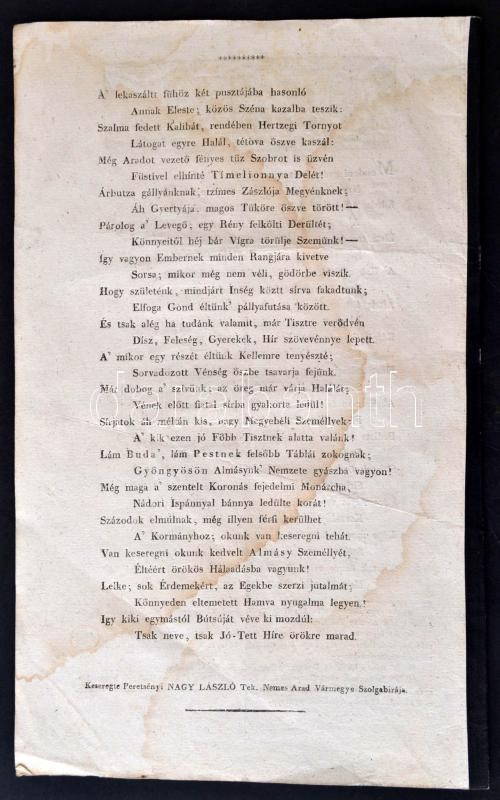 **********
A' lekaszáltt fühöz két pusztájába hasonló
Annak Eleste; közös Széna kazalba teszik:
Szalma fedett Kalibát, rendében Hertzegi Tornyot
Látogat egyre Halál, tétova öszve kaszál:
Még Aradot vezető fényes tüz Szobrot is üzvén
Füstivel elhinté Timelionnya Delét!
Árbutza gállyánknak; tzímes Zászlója Megyénknek;
Áh Gyertyája, magos Tüköre öszve törött!—
Párolog a' Levegő; egy Rény felkölti Derültét;
Könnyeitől héj bár Vígra törülje Szemünk!—
Így vagyon Embernek minden Rangjára kivetve
Sorsa; mikor még nem véli, gödörbe viszik.
Hogy születénk, mindjárt Inség köztt sírva fakadtunk;
Elfoga Gond éltünk' pállyafutása között.
És tsak alég ha tudánk valamit, már Tisztre verődvén
Dísz, Feleség, Gyerekek, Hír szövevénnye lepett.
A' mikor egy részét éltünk Kellemre tenyészté;
Sorvadozott Vénség öszbe tsavarja fejünk.
Már dobog a' szívünk; az öreg már várja Halálát;
Vének előtt fiatal sírba gyakorta ledül!
Sírjatok áh méltán kis, nagy Megyebéli Személlyek;
A' kik ezen jó Főbb Tisztnek alatta valánk!
Lám Buda', lám Pestnek felsőbb Táblái zokognak;
Gyöngyösön Almásynk' Nemzete gyászba vagyon!
Még maga a' szentelt Koronás fejedelmi Monárcha,
Nádori Ispánnyal bánnya ledülte korát!
Századok elmúlnak, még illyen férfi kerülhet
A' Kormányhoz; okunk van keseregni tehát.
Van keseregni okunk kedvelt Almásy Személlyét,
Éltéért örökös Hálaadásba vagyunk!
Lelke; sok Érdemekért, az Egekbe szerzi jutalmát;
Könnyeden eltemetett Hamva nyugalma legyen!
Igy kiki egymástól Bútsúját véve ki mozdúl:
Tsak neve, tsak Jó-Tett Híre örökre marad.
Keseregte Peretsényi NAGY LÁSZLÓ Tek. Nemes Arad Vármegye Szolgabirája.